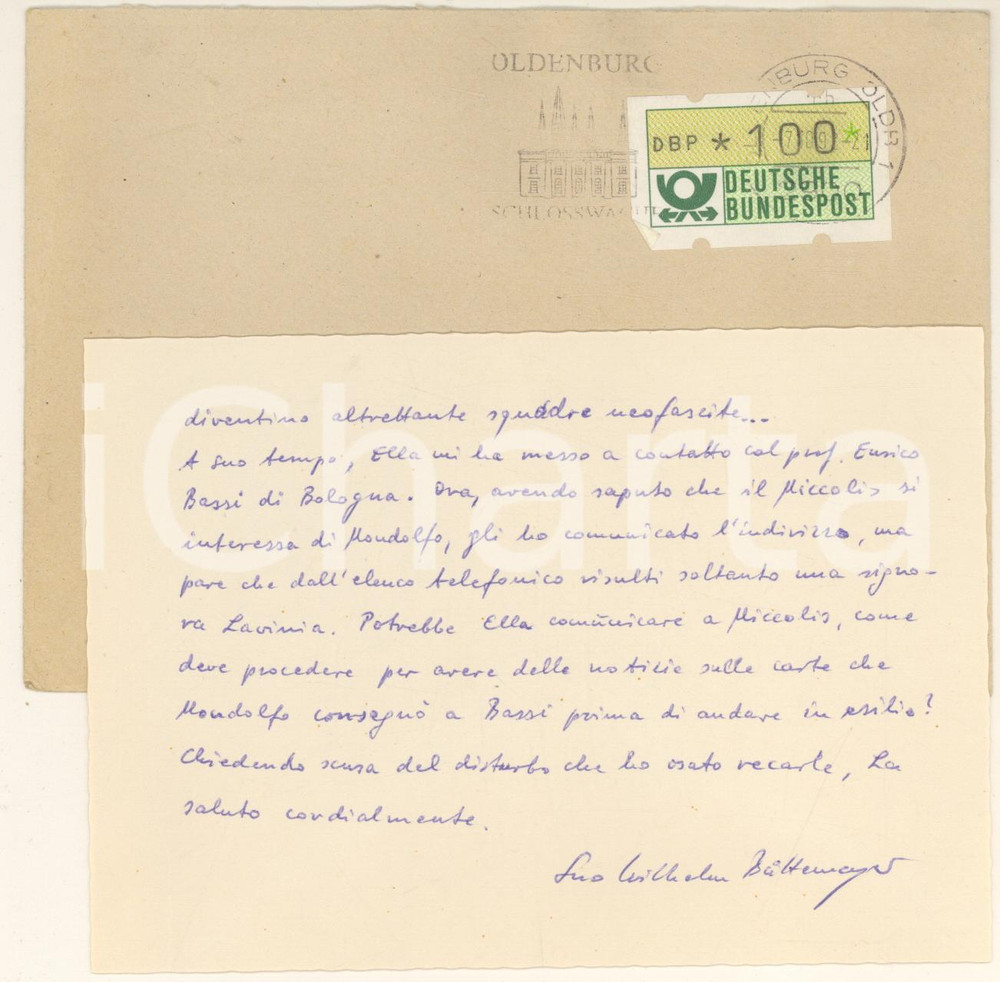 OLDENBURG
SCHLOSSWACHE
OLDB 1
DBP * 100 *
DEUTSCHE
BUNDESPOST
iCharta
diventino altrettante squadre neofascite...
A suo tempo, Ella mi ha messo a contatto col prof. Enrico
Bassi di Bologna. Ora, avendo saputo che il Miccolis si
interessa di Mondolfo, gli ho comunicato l'indirizzo, ma
pare che dall'elenco telefonico risulti soltanto una signo-
ra Lavinia. Potrebbe Ella comunicare a Miccolis, come
deve procedere per avere delle notizie sulle carte che
Mondolfo consegnò a Bassi prima di andare in esilio?
Chiedendo scusa del disturbo che ho osato recarle, La
saluto cordialmente.
Suo Wilhelm Büttemeyer